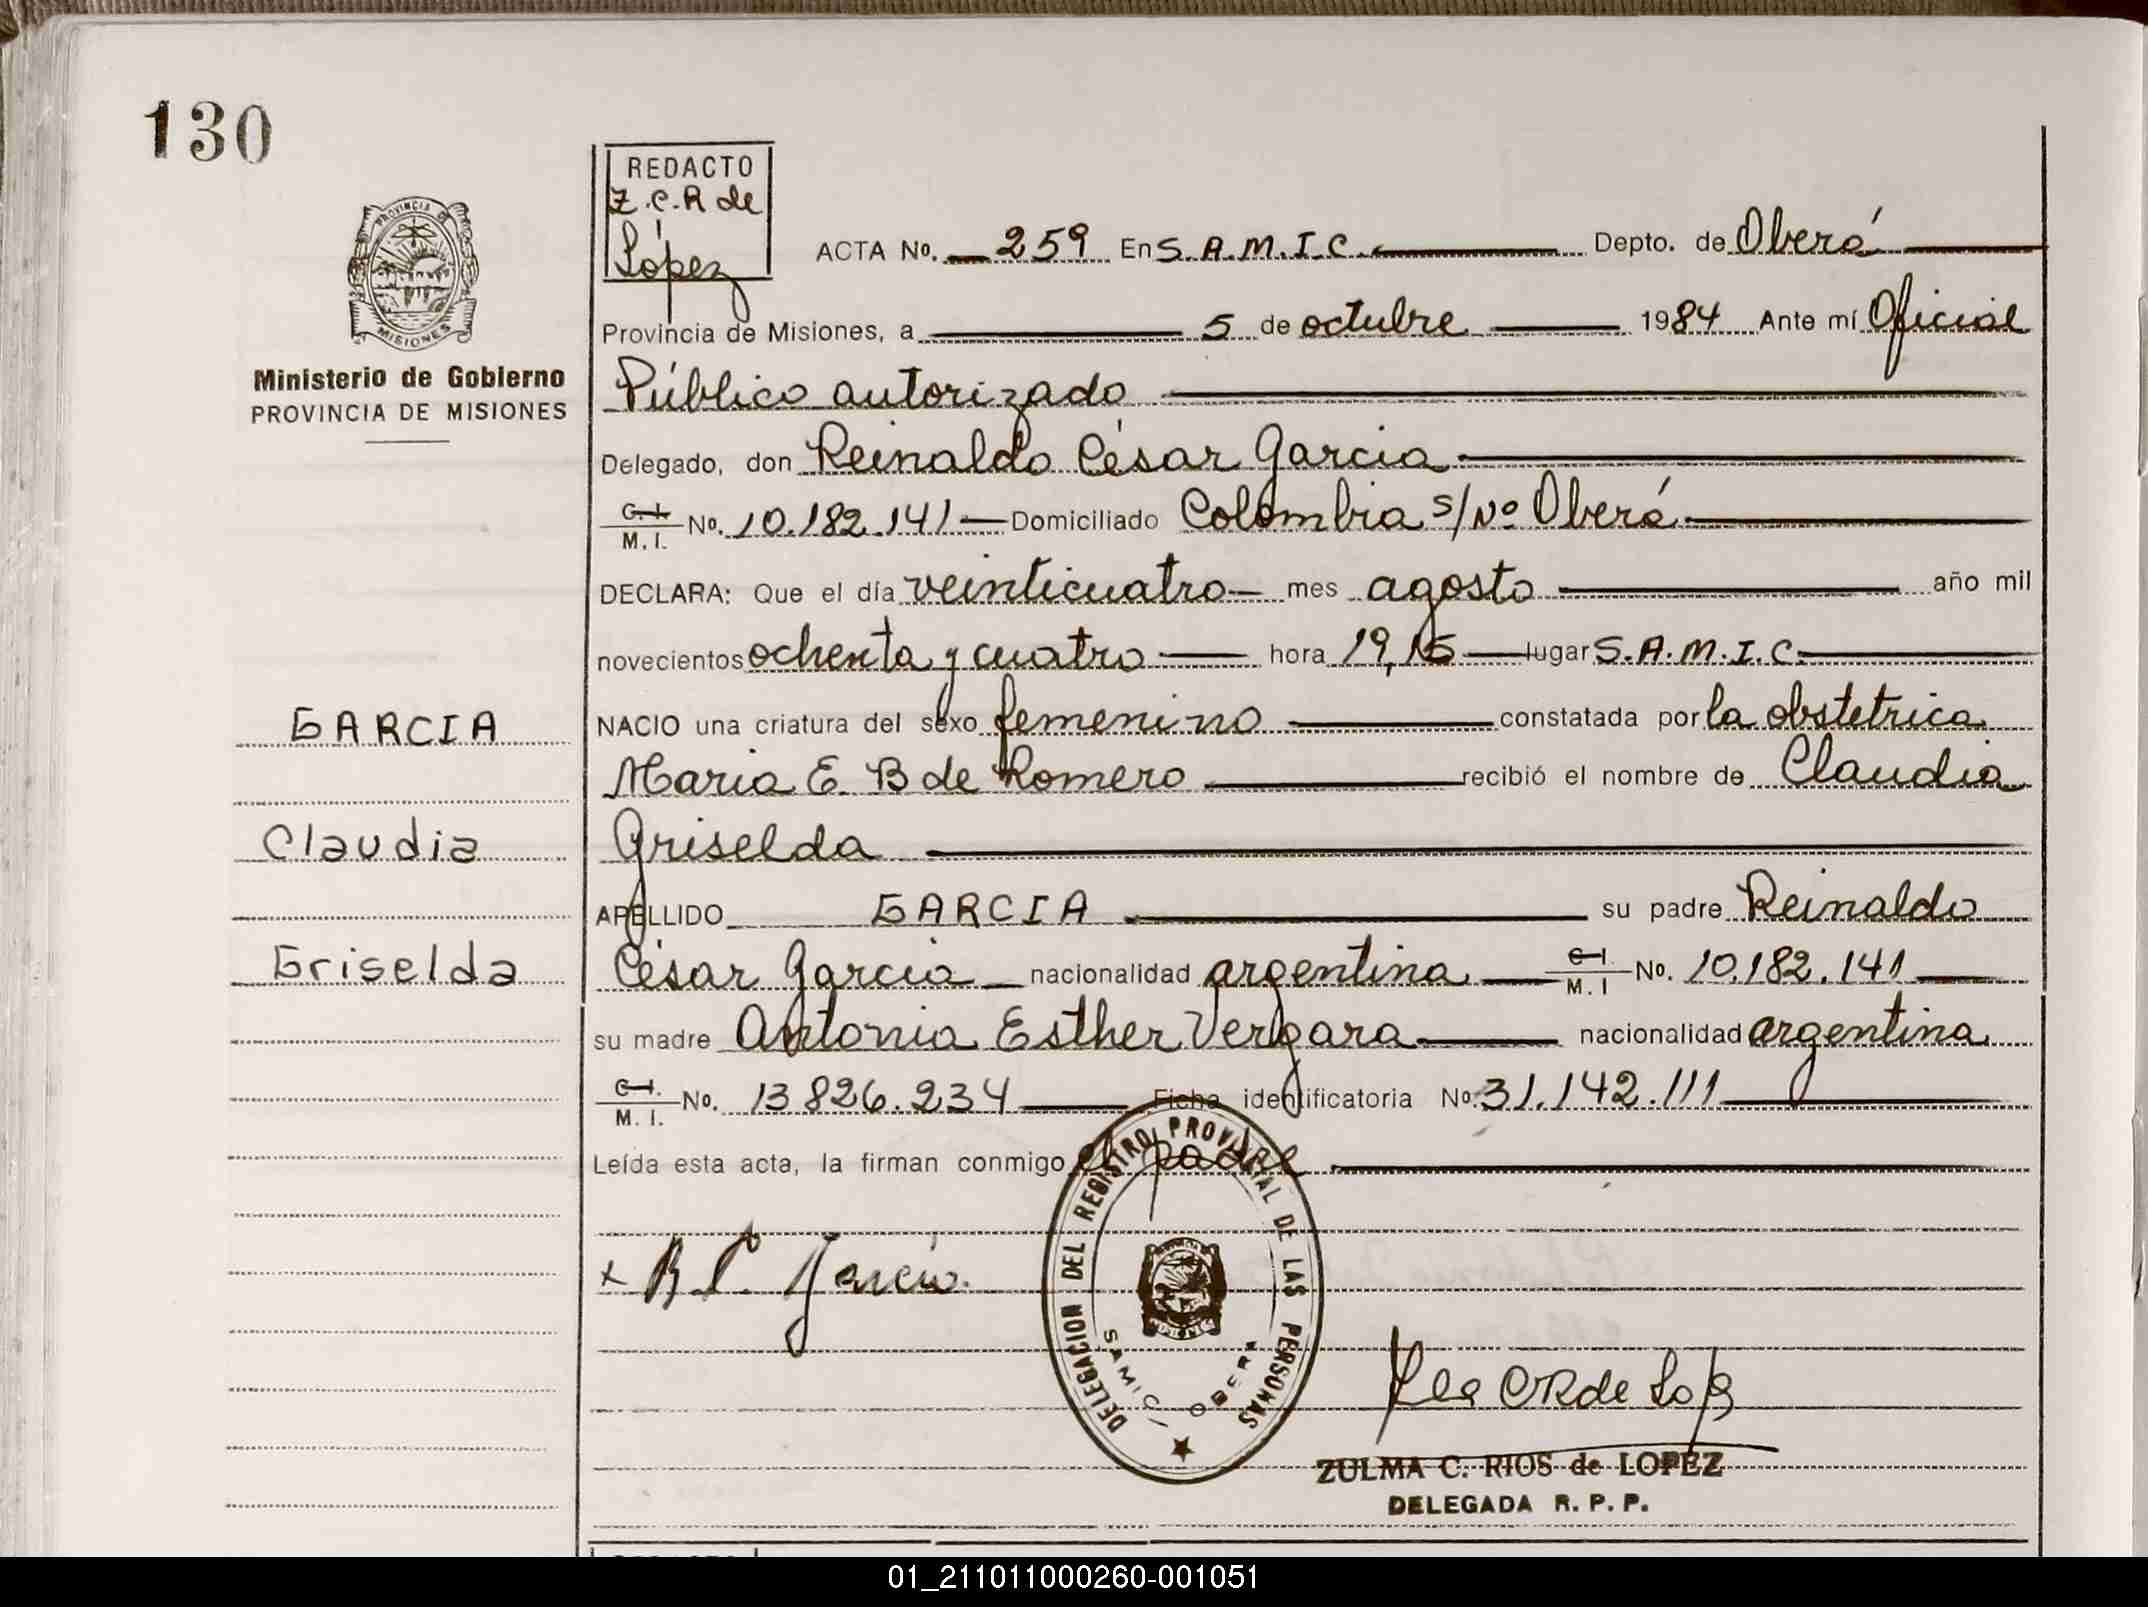 130
REDACTO
Z.C.R de
López
ACTA No. 259 En S.A.M.I.C. Depto. de Oberá
PROVINCIA DE
MISIONES
Ministerio de Gobierno
PROVINCIA DE MISIONES
Provincia de Misiones, a 5 de octubre 1984 Ante mí Oficial
Público autorizado
Delegado, don Reinaldo César Garcia
C.I. M.I. No. 10.182.141 Domiciliado Colombia s/No Oberá
DECLARA: Que el día veinticuatro mes agosto año mil
novecientos ochenta y cuatro hora 19,15 lugar S.A.M.I.C.
NACIO una criatura del sexo femenino constatada por la obstetrica
Maria E. B de Romero recibió el nombre de Claudia
Griselda
APELLIDO GARCIA su padre Reinaldo
César Garcia nacionalidad argentina C.I. M.I No. 10.182.141
su madre Antonia Esther Vergara nacionalidad argentina
C.I. M.I. No. 13826.234 Ficha identificatoria No. 31.142.111
Leída esta acta, la firman conmigo el padre
GARCIA
Claudia
Griselda
x R C Garcia.
DELEGACION DEL REGISTRO PROVINCIAL DE LAS PERSONAS
SAMIC, OBERA
ZULMA C. RIOS de LOPEZ
DELEGADA R. P. P.
01_211011000260-001051